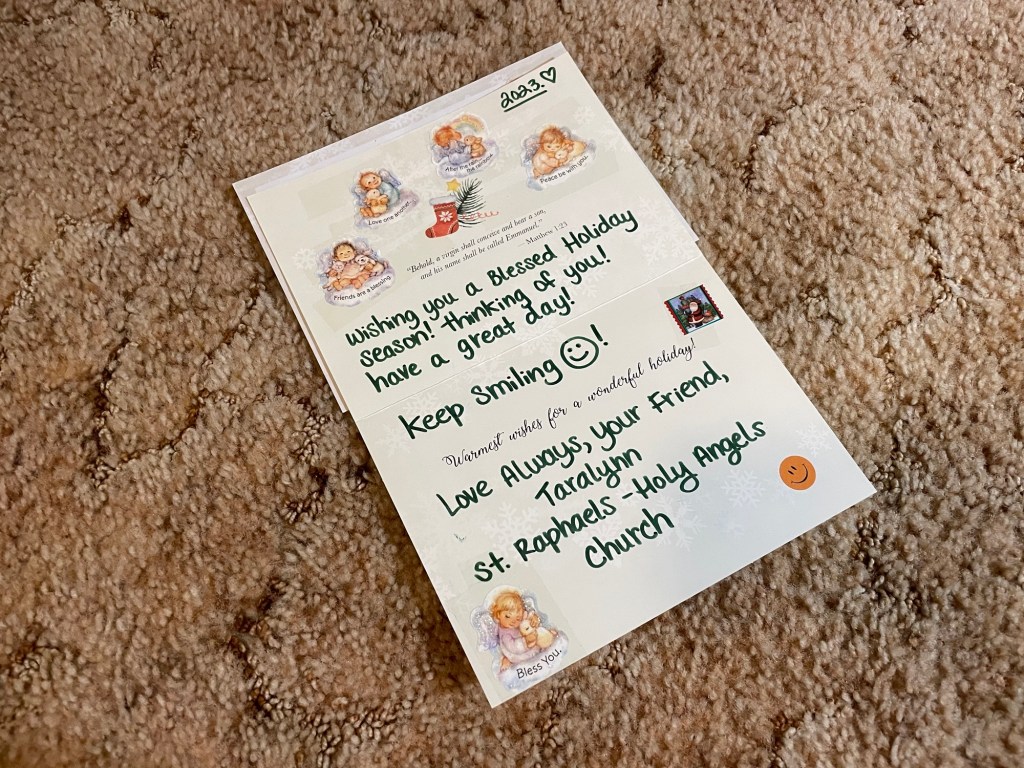 2023. ♡
After the rain,
the rainbow.
Peace be with you.
Love one another.
Friends are a blessing.
"Behold, a virgin shall conceive and bear a son,
and his name shall be called Emmanuel."
—Matthew 1:23
Wishing you a Blessed Holiday
Season! Thinking of you!
have a great day!
Keep Smiling ☺!
Warmest wishes for a wonderful holiday!
Love Always, your Friend,
Taralynn
St. Raphaels - Holy Angels
Church
Bless You.